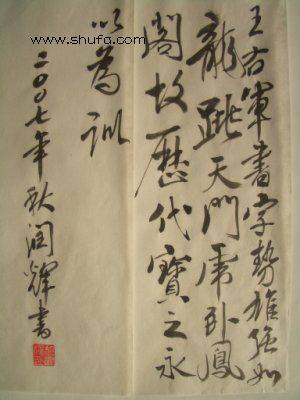 王右軍書字勢雄強如
龍跳天門虎卧鳳
閣故歷代寶之永
以為訓
二〇〇七年秋潤輝書
www.shufa.com